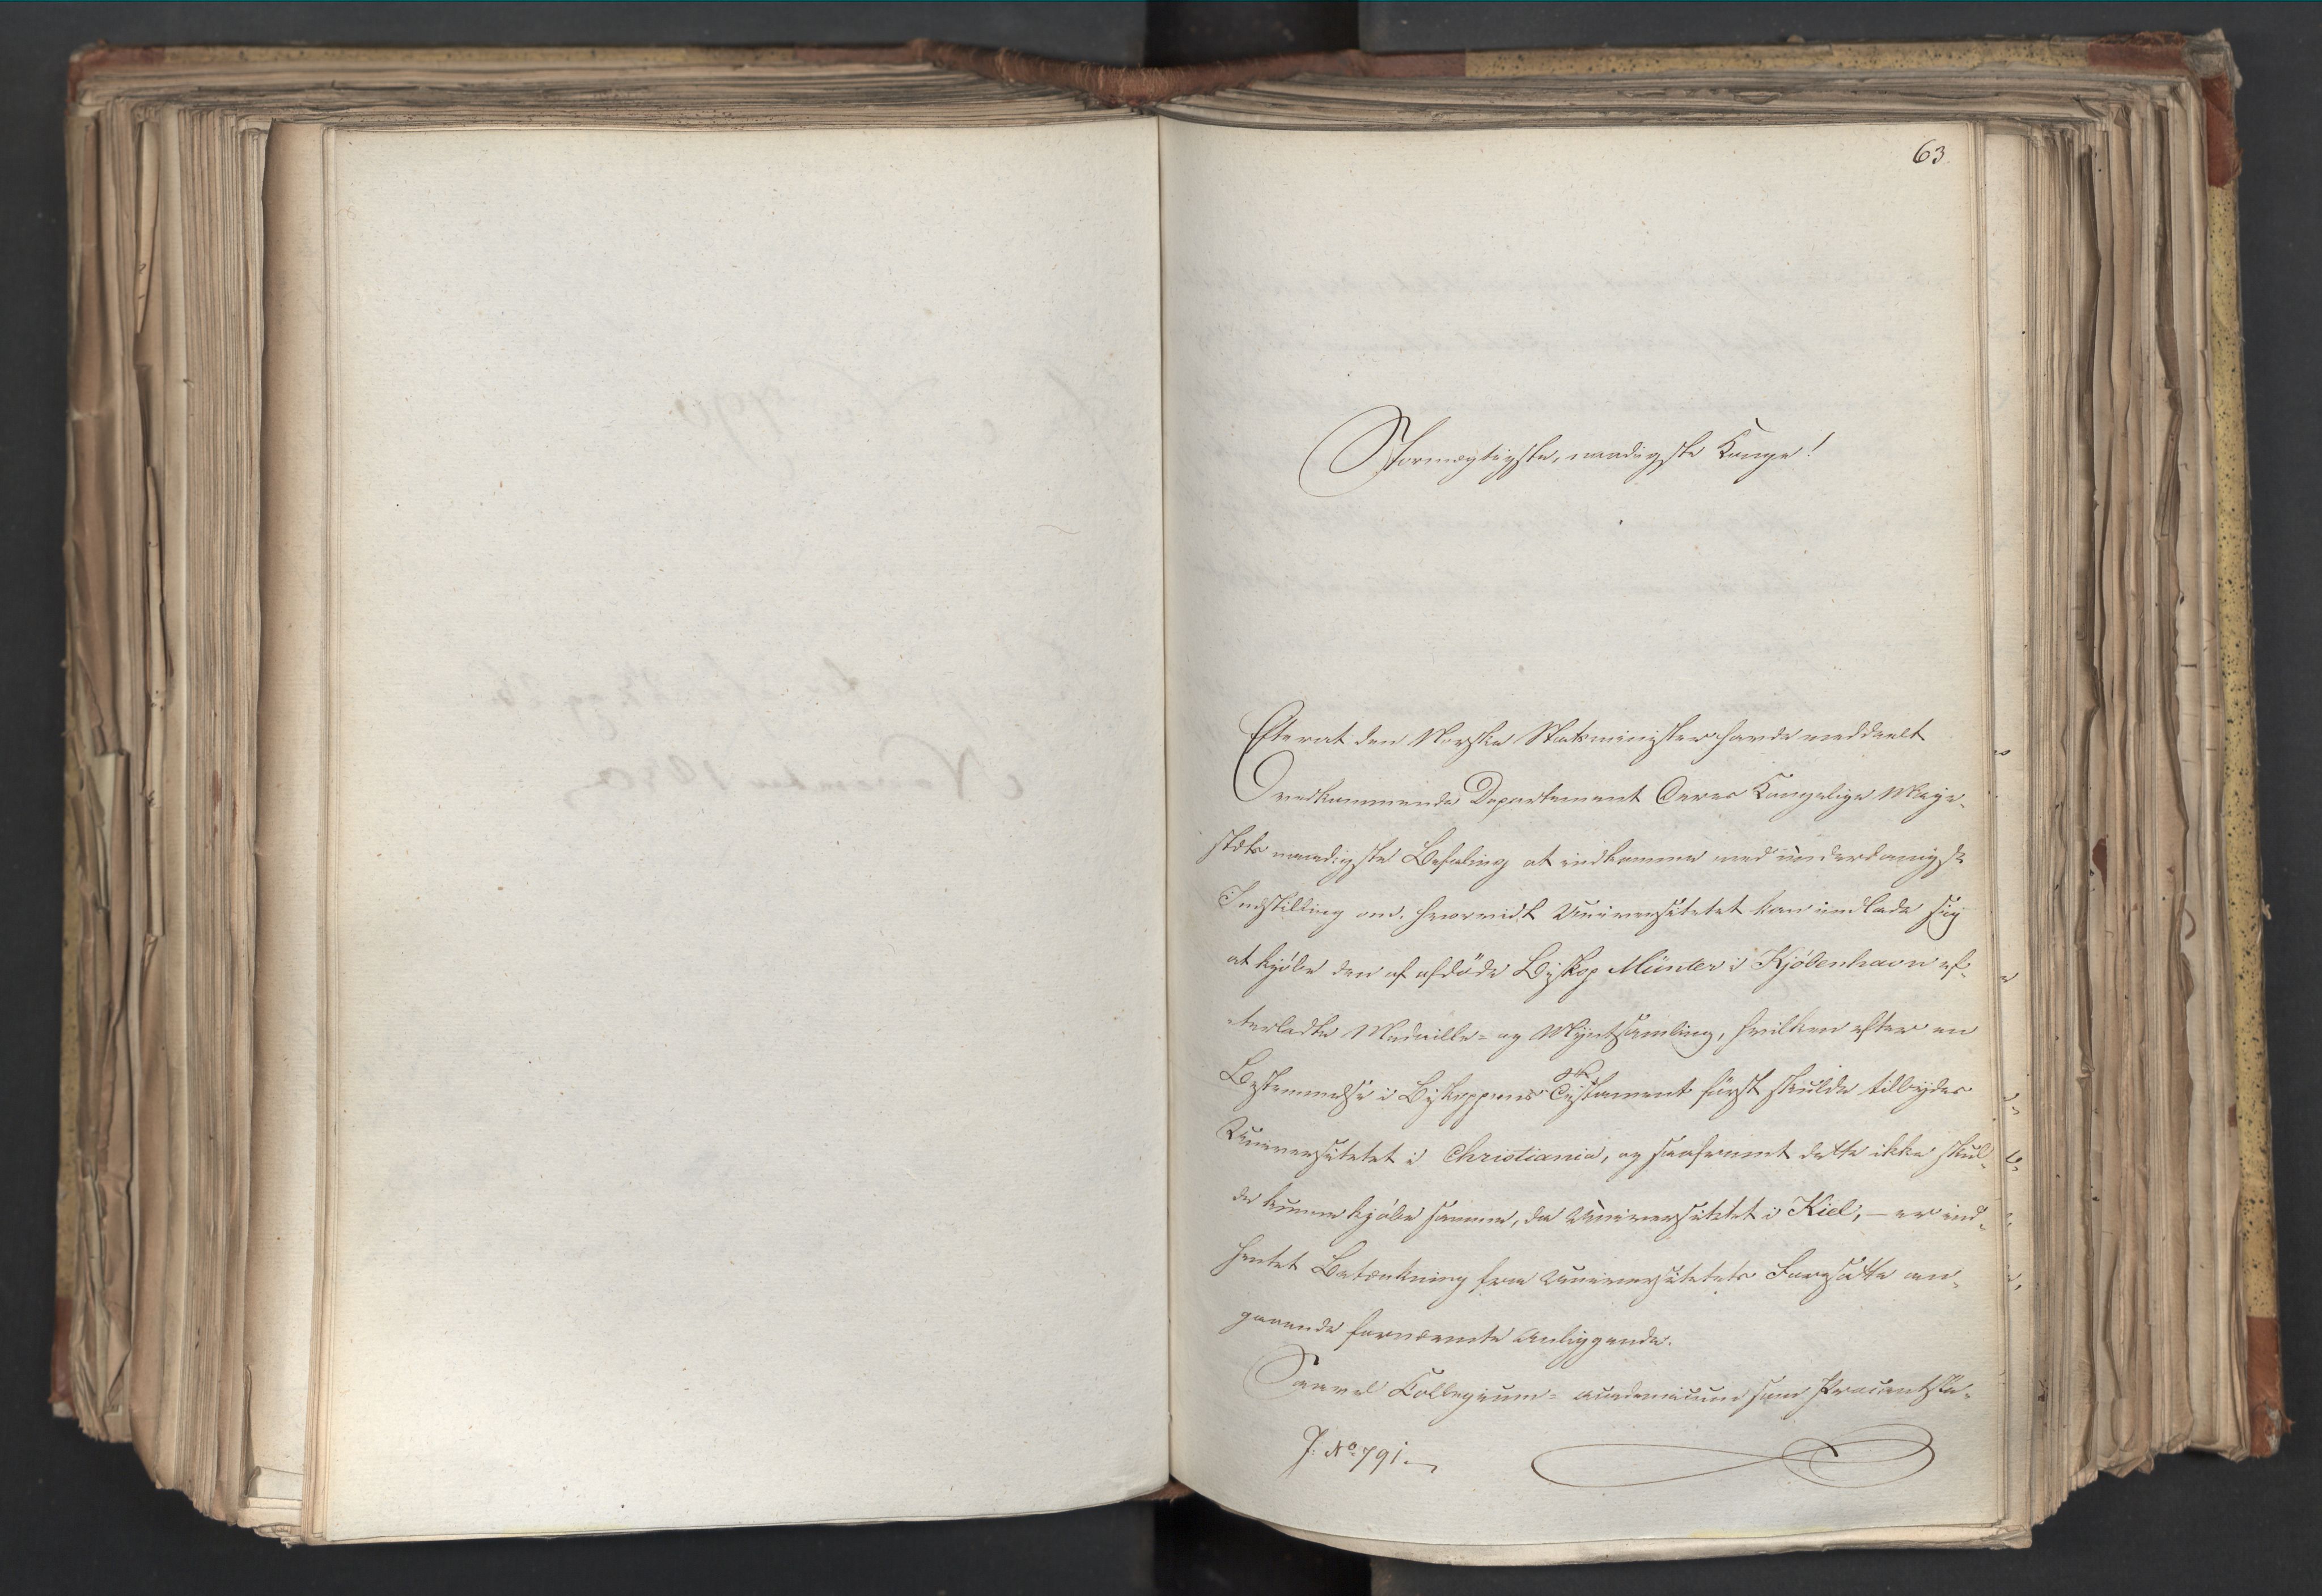 63
Stormægtigste, naadigste Konge!
Efterat den Norske Statsminister havde meddeelt
Vedkommende Departement Deres Kongelige Maje-
stæts naadigste Befaling at indkomme med underdanigst
Indstilling om, hvorvidt Universitetet kan indlade sig
at kjöbe den af afdöde Biskop Münter i Kjöbenhavn ef-
terladte Medaille- og Myntsamling, hvilken efter en
Bestemmelse i Biskoppens Testament först skulde tilbydes
Universitetet i Christiania, og saafremt dette ikke skul-
de kunne kjöbe samme, da Universitetet i Kiel, - er ind-
hentet Betænkning fra Universitetets Foresatte an-
gaaende fornævnte Anliggende.
Saavel Collegium- academicum som Procantsle-
J: No 791.